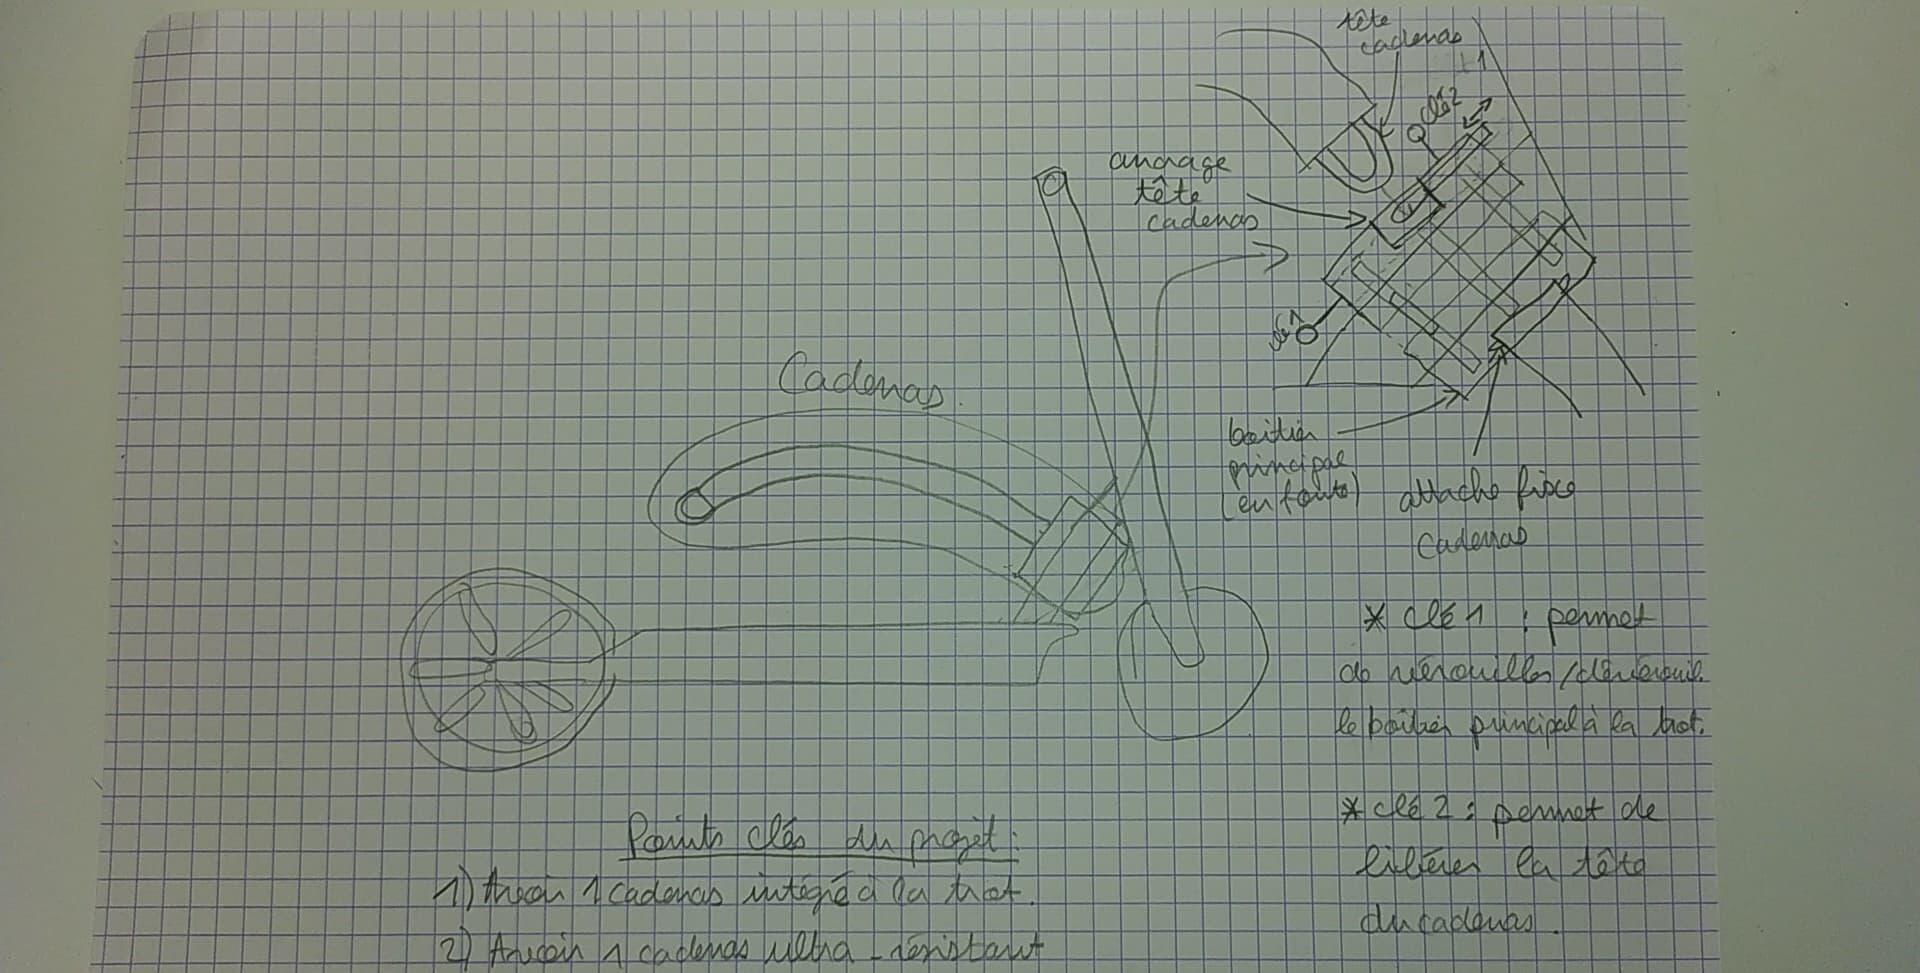 tête
cadenas
clé 2
ancrage
tête
cadenas
clé 1
Cadenas.
boitier
principal
(en fonte)
attache fixe
cadenas
* clé 1 : permet
de vérouiller / dévérouil.
le boîtier principal à la trot.
* clé 2 : permet de
libérer la tête
du cadenas.
Points clés du projet :
1) Avoir 1 cadenas intégré à la trot.
2) Avoir 1 cadenas ultra-résistant